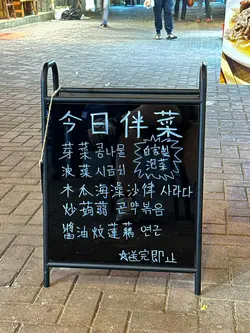 今日伴菜
自家製
泡菜
芽菜 콩나물
浪菜 시금치
木瓜海藻沙律 사라다
炒蒟蒻 곤약볶음
醬油炆蓮藕 연근
☆送完即止